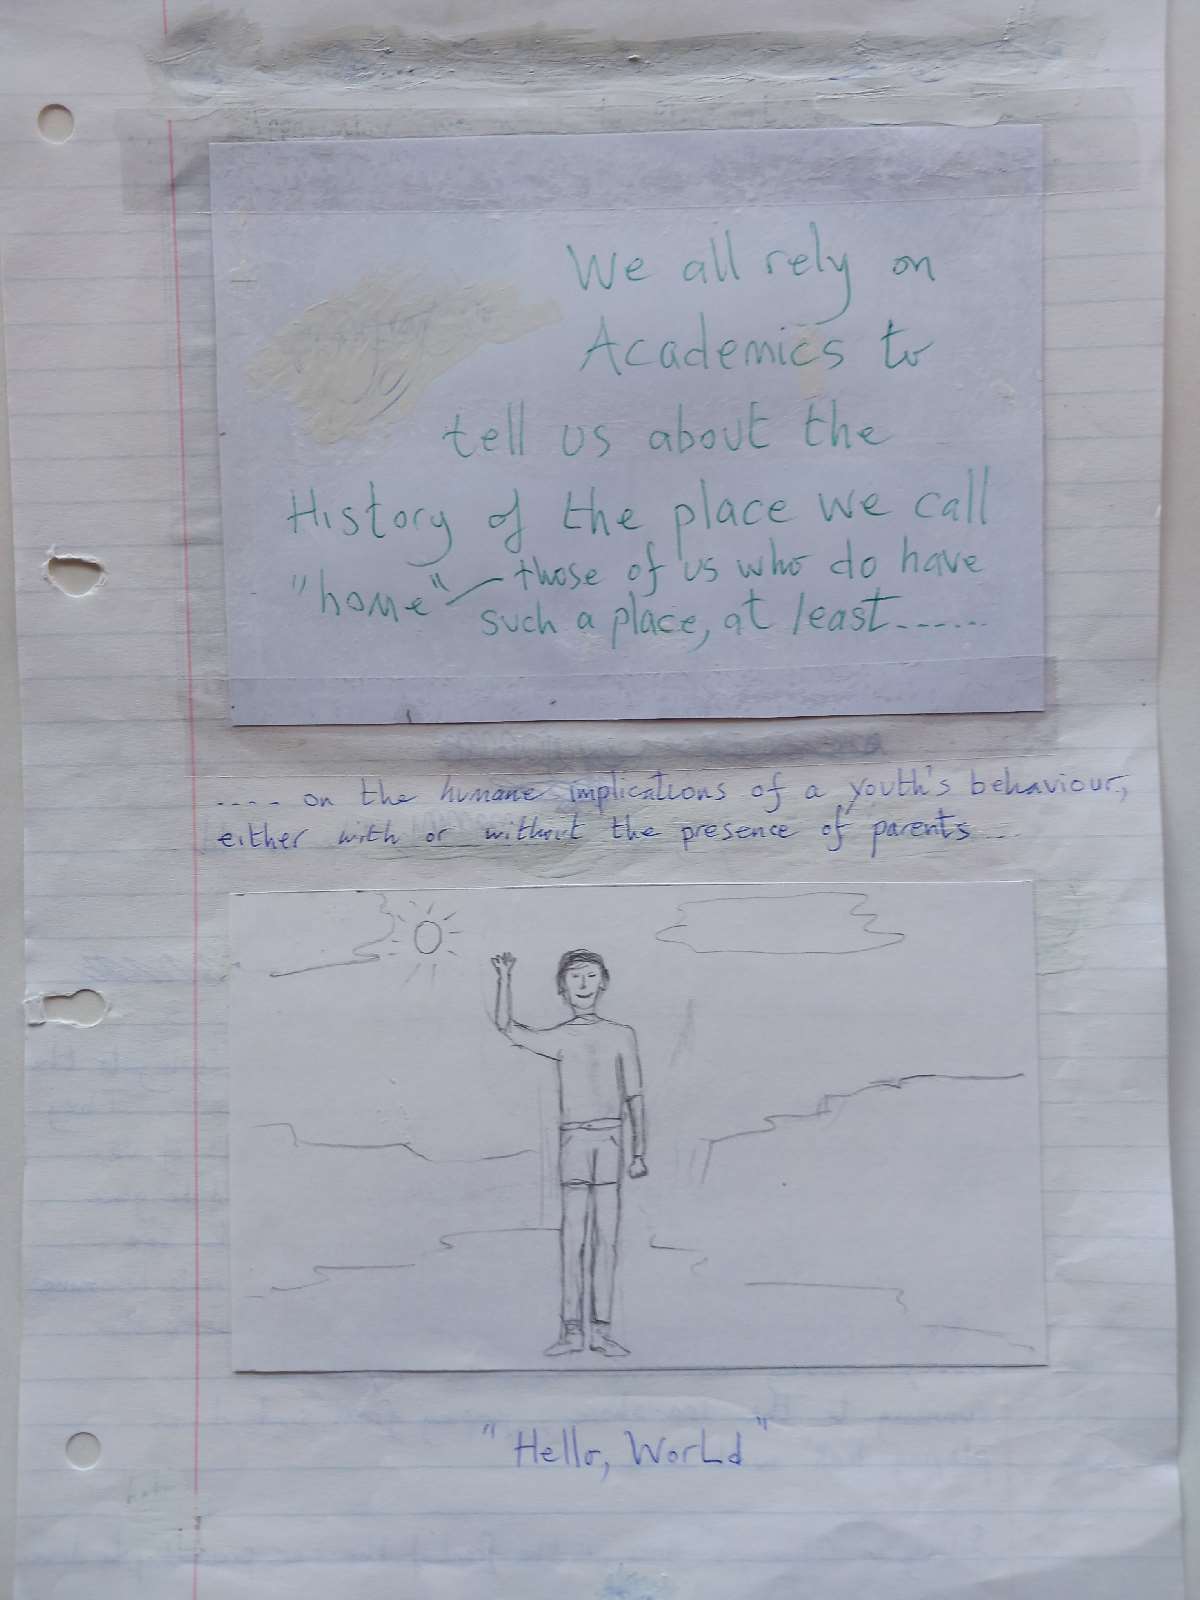 We all rely on
Academics to
tell us about the
History of the place we call
"home" — those of us who do have
such a place, at least.......
.... on the humane implications of a youth's behaviour,
either with or without the presence of parents...
"Hello, World"